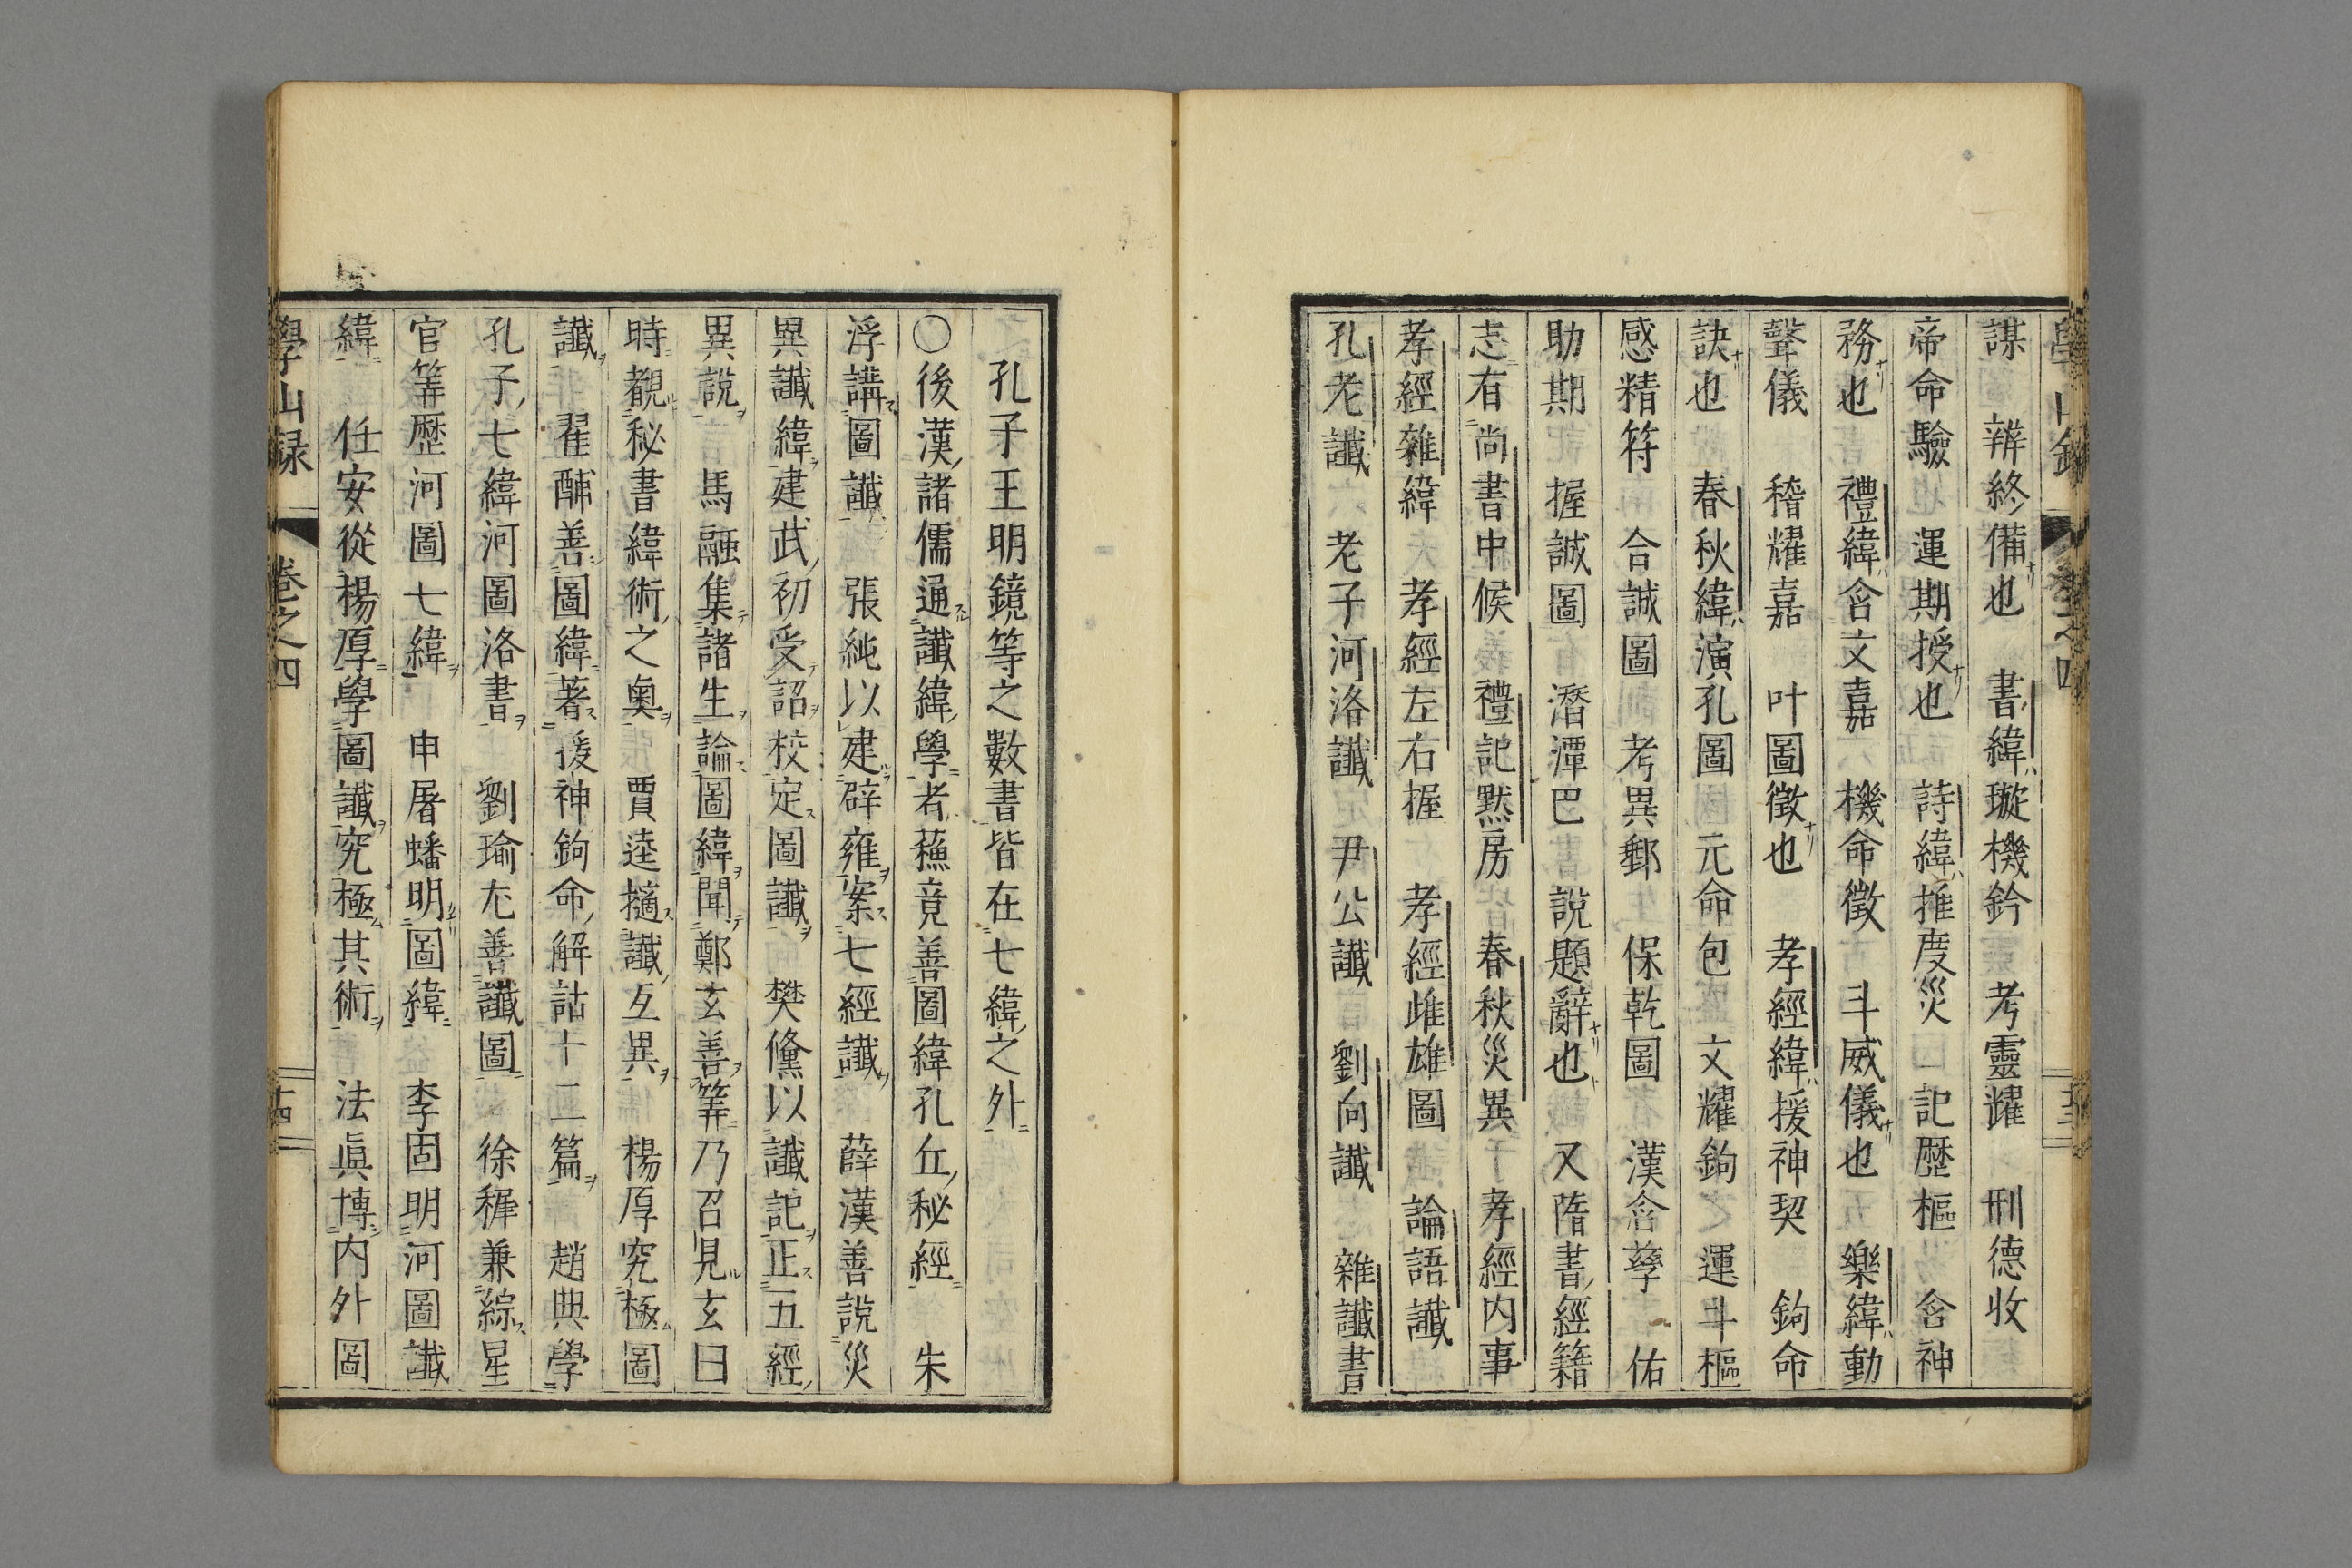 謀 辨終備也 書緯璇機鈐 考靈耀 刑德收
帝命驗 運期授也 詩緯推度災 記歴樞 含神
務也 禮緯含文嘉 機命徵 斗威儀也 樂緯動
聲儀 稽耀嘉 叶圖徵也 孝經緯援神契 鉤命
訣也 春秋緯演孔圖 元命包 文耀鉤 運斗樞
感精符 合誠圖 考異郵 保乾圖 漢含孳 佑
助期 握誠圖 潛潭巴 說題辭也 又隋書經籍
志有尚書中候 禮記黙房 春秋災異 孝經内事
孝經雜緯 孝經左右握 孝經雌雄圖 論語讖
孔老讖 老子河洛讖 尹公讖 劉向讖 雜讖書
孔子王明鏡等之數書皆在七緯之外
○後漢諸儒通讖緯學者蘓竟善圖緯孔丘秘經 朱
浮講圖讖 張純以建辟雍案七經讖 薛漢善說災
異讖緯建武初受詔校定圖讖 樊儵以讖記正五經
異說 馬融集諸生論圖緯聞鄭玄善筭乃召見玄曰
時覩秘書緯術之奧 賈逵擿讖互異 楊厚究極圖
讖 翟酺善圖緯著援神鉤命解詁十二篇 趙典學
孔子七緯河圖洛書 劉瑜尤善讖圖 徐穉兼綜星
官筭歴河圖七緯 申屠蟠明圖緯 李固明河圖讖
緯 任安從楊厚學圖讖究極其術 法眞博内外圖
學山録 卷之四 十四